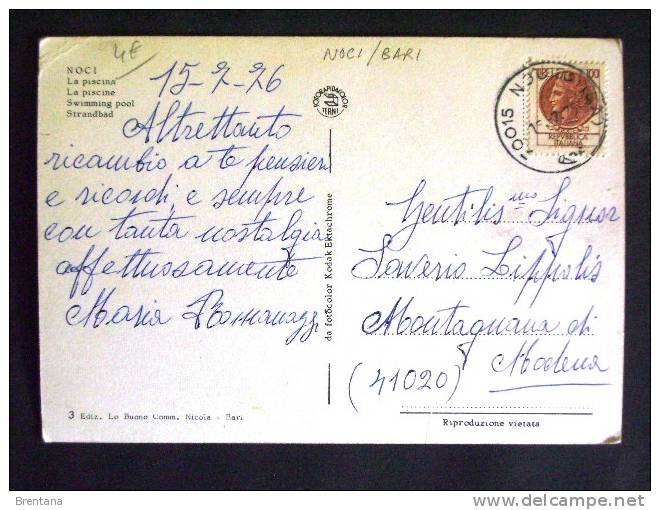 4€
NOCI/BARI
NOCI
La piscina
La piscine
Swimming pool
Strandbad
FOTORAPIDACOLOR
TERNI
100
REPVBBLICA
ITALIANA
70015 NOCI
15-7-76
Altrettanto
ricambio a te pensieri
e ricordi, e sempre
con tanta nostalgia
affettuosamente
Maria Romanazzi
da fotocolor Kodak Ektachrome
Gentilis mo Signor
Saverio Lippolis
Montagnana di
Modena
(41020)
3 Ediz. Lo Buono Comm. Nicola - Bari
Riproduzione vietata
Brentana
delcampe.net